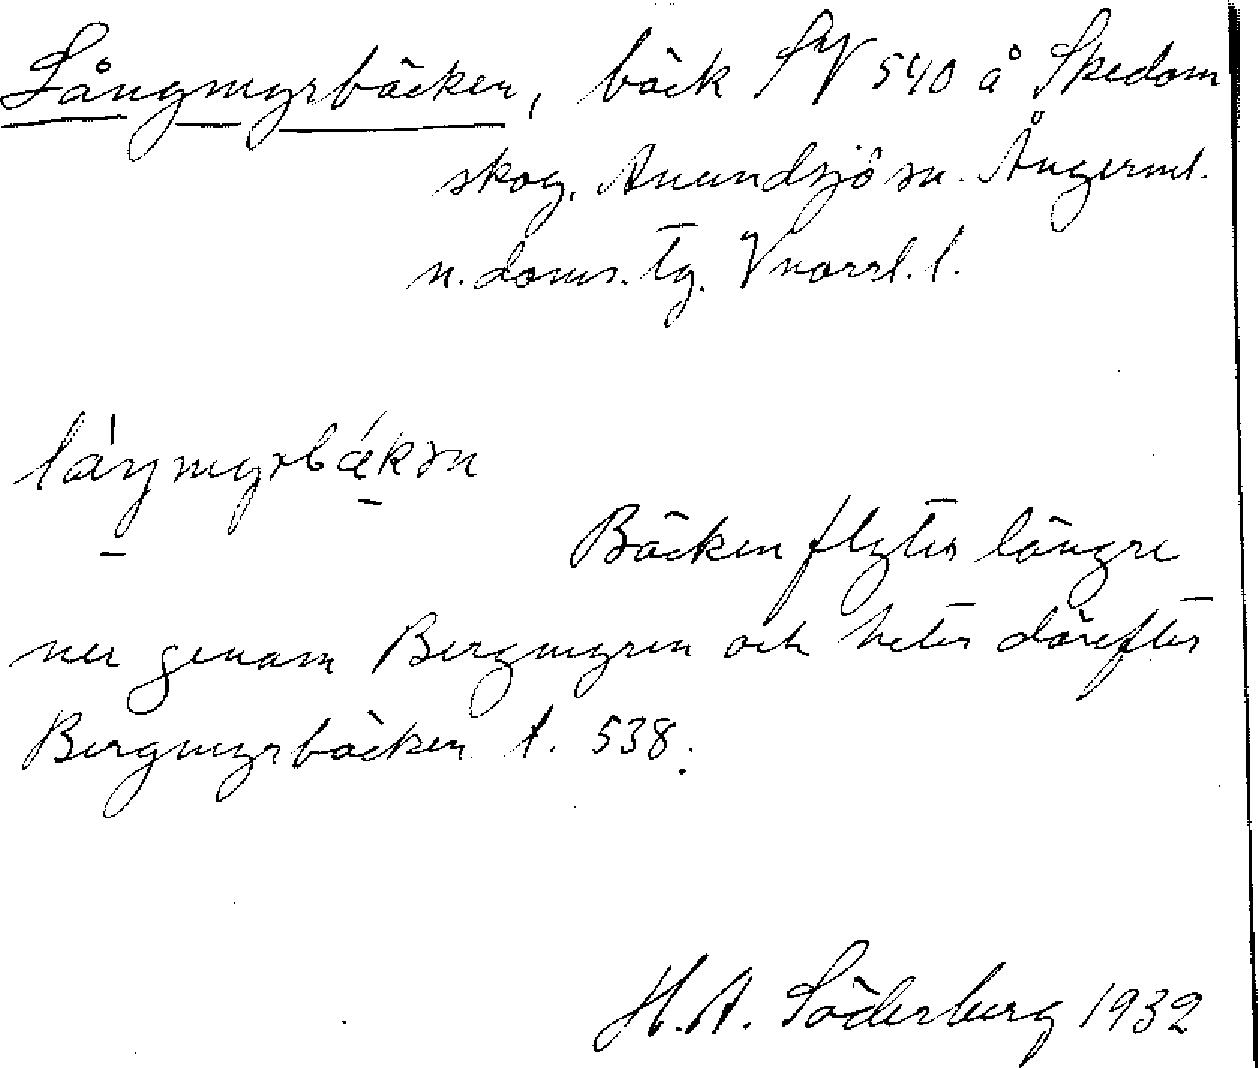 Långmyrbäcken, bäck SV 540 å Skedom
skog, Anundsjö sn. Ångerml.
n. doms. tg. Vnorrl. l.
låŋmyrbækən
Bäcken flyter längre
ner genom Bergmyren och heter därefter
Bergmyrbäcken l. 538.
H. A. Söderberg 1932